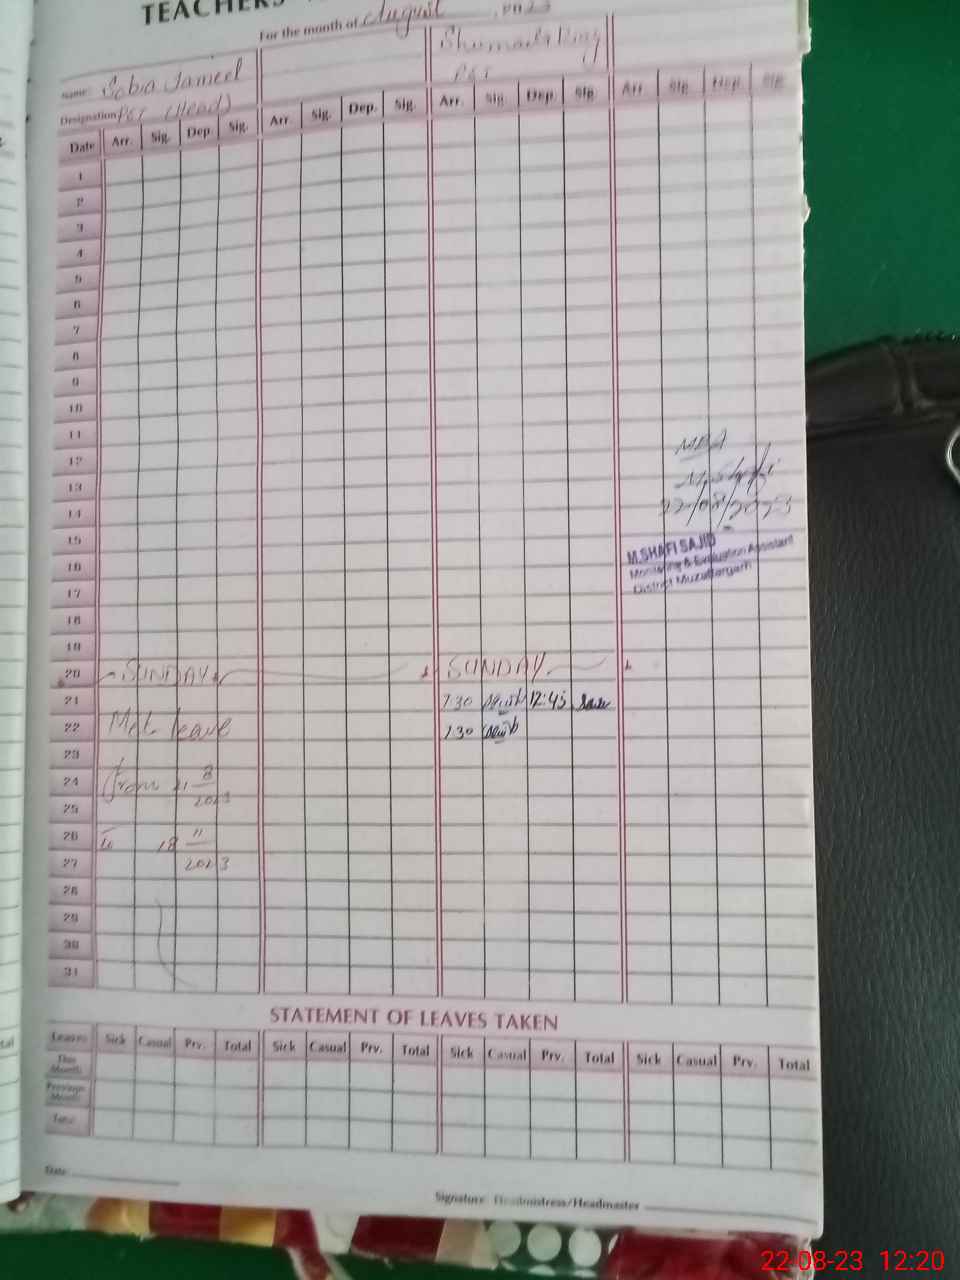 TEACHERS
For the month of August, 2023
Name: Sobia Jameel
Designation PST (Head)
PST
Date Arr. Sig. Dep. Sig. Arr. Sig. Dep. Sig. Arr. Sig. Dep. Sig. Arr. Sig. Dep. Sig.
1
2
3
4
5
6
7
8
9
10
11
MEA
12
13
M. Shafi
14
22/08/2023
15
M.SHAFI SAJID
16
Monitoring & Evaluation Assistant
17
District Muzaffargarh
18
19
20 SUNDAY SUNDAY
21 7:30 12:45
22 Met leave 7:30
23
24 from 21 8
25 2023
26 to 18 11
27 2023
28
29
30
31
STATEMENT OF LEAVES TAKEN
Leaves Sick Casual Prv. Total Sick Casual Prv. Total Sick Casual Prv. Total Sick Casual Prv. Total
This Month
Previous Month
Total
Date
Signature Headmistress/Headmaster
22-08-23 12:20